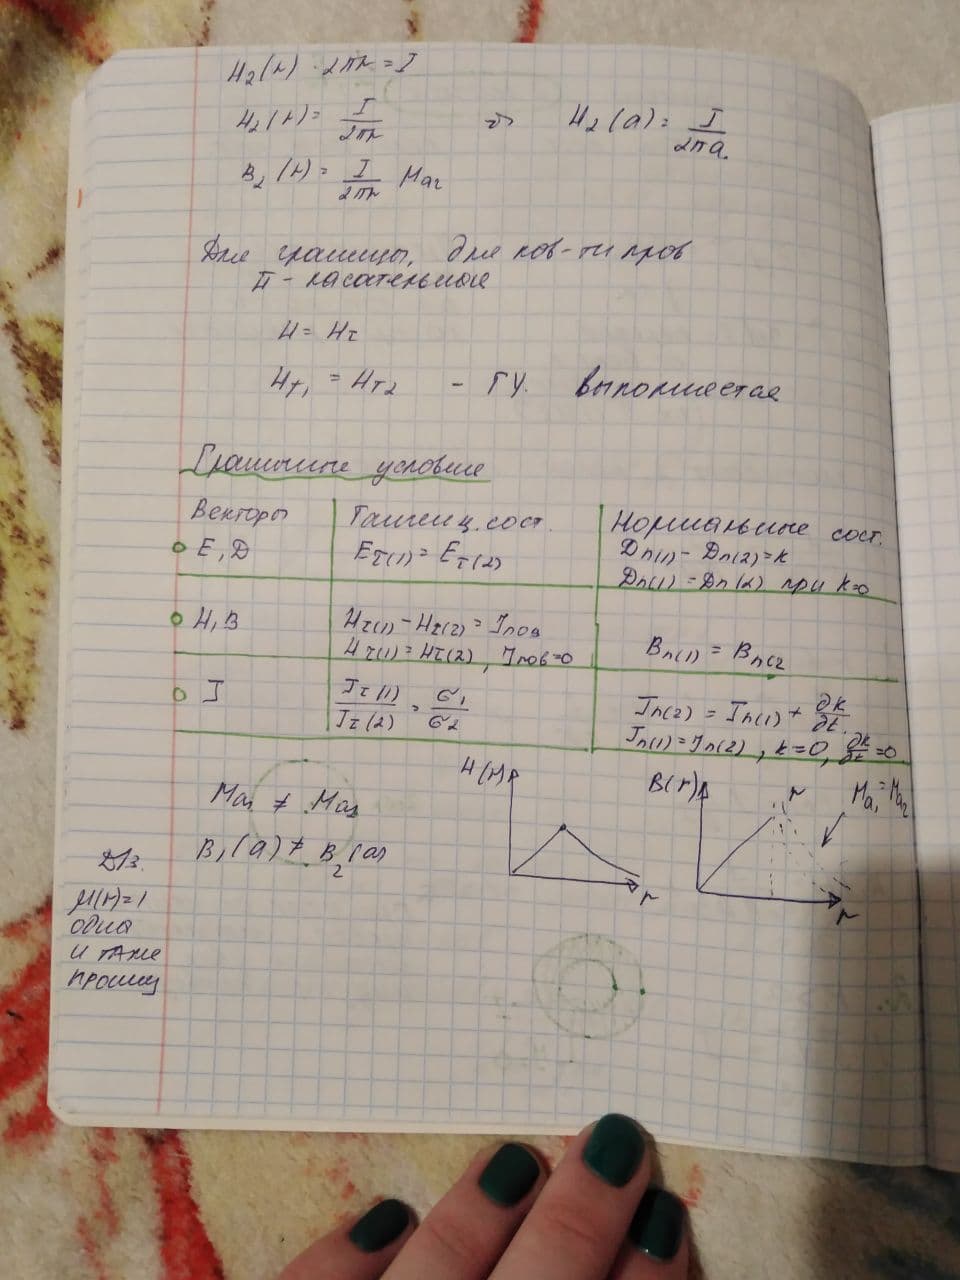 H₂(r) · 2πr = I
H₂(r) = I/2πr ⇒ H₂(a) = I/2πa.
B₂(r) = I/2πr Ma₂
Для границы, для пов-ти пров
II - касательные
H = Hτ
Hτ₁ = Hτ₂ - ГУ. выполняется
Граничные условие
Векторы Танженц. сост. Нормальные сост.
E, D Eτ(1) = Eτ(2) Dn(1) - Dn(2) = k
Dn(1) = Dn(2) при k=0
H, B Hτ(1) - Hτ(2) = Jпов
Hτ(1) = Hτ(2), Jпов=0 Bn(1) = Bn(2
J Jτ(1)/Jτ(2) = σ₁/σ₂ Jn(2) = Jn(1) + ∂k/∂t.
Jn(1) = Jn(2), k=0, ∂k/∂t=0
H(r) r
B(r) r Ma₁ = Ma₂ r
Ma₁ ≠ Ma₂
B₁(a) ≠ B₂(a)
Д/з.
μ(r)=1
одна
и таже
прониц